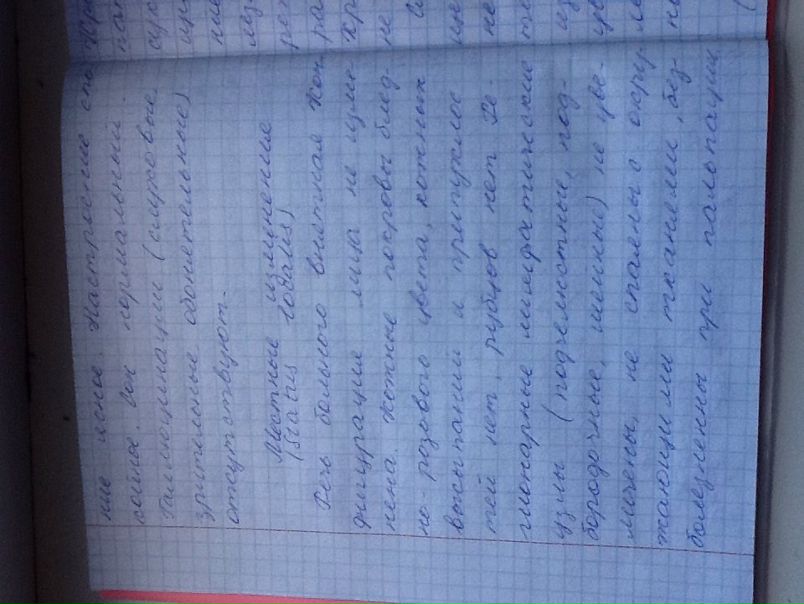 ние ясное. Настроение спо
койное. Сон нормальный.
Галлюцинации (слуховые,
зрительные обонятельные)
отсутствуют.
Местные изменения
(Status localis)
Речь больного внятная Кон
фигурация лица не изме-
нена. Кожные покровы блед-
но-розового цвета, кожных
высыпаний и припухлос
тей нет, рубцов нет Ре-
гионарные лимфатические
узлы (подчелюстные, под-
бородочные, шейные) не уве-
личены, не спаяны с окру-
жающими тканями, без-
болезненны при пальпации